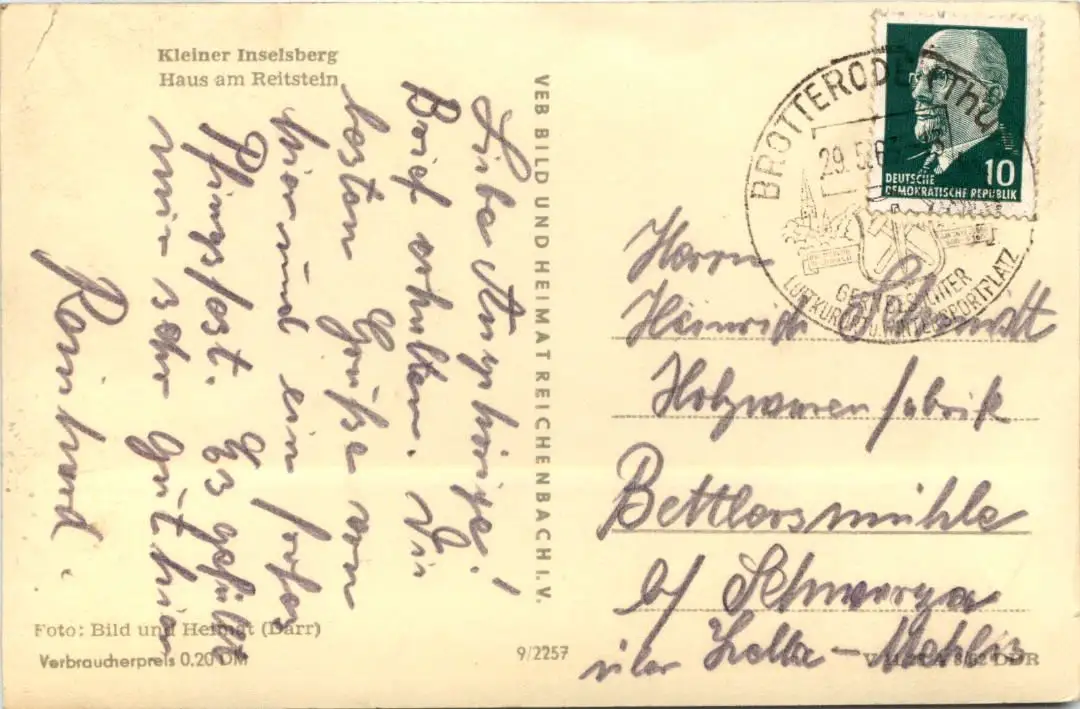 Kleiner Inselsberg
Haus am Reitstein
Liebe Angehörige!
Brief erhalten. Die
besten Grüße von
hier und ein frohes
Pfingstfest. Es gefällt
mir sehr gut hier
Reinhard.
VEB BILD UND HEIMAT REICHENBACH I. V.
BROTTERODE (Thür
29.5.6
GESUNDER
LUFTKURORT U. WINTERSPORTPLATZ
10
DEUTSCHE
DEMOKRATISCHE REPUBLIK
Herrn
Heinrich Schmidt
Holzwarenfabrik
Bettlersmühle
b/ Schwarza
über Zella-Mehlis
Foto: Bild und Heimat (Darr)
Verbraucherpreis 0,20 DM
9/2257
DDR